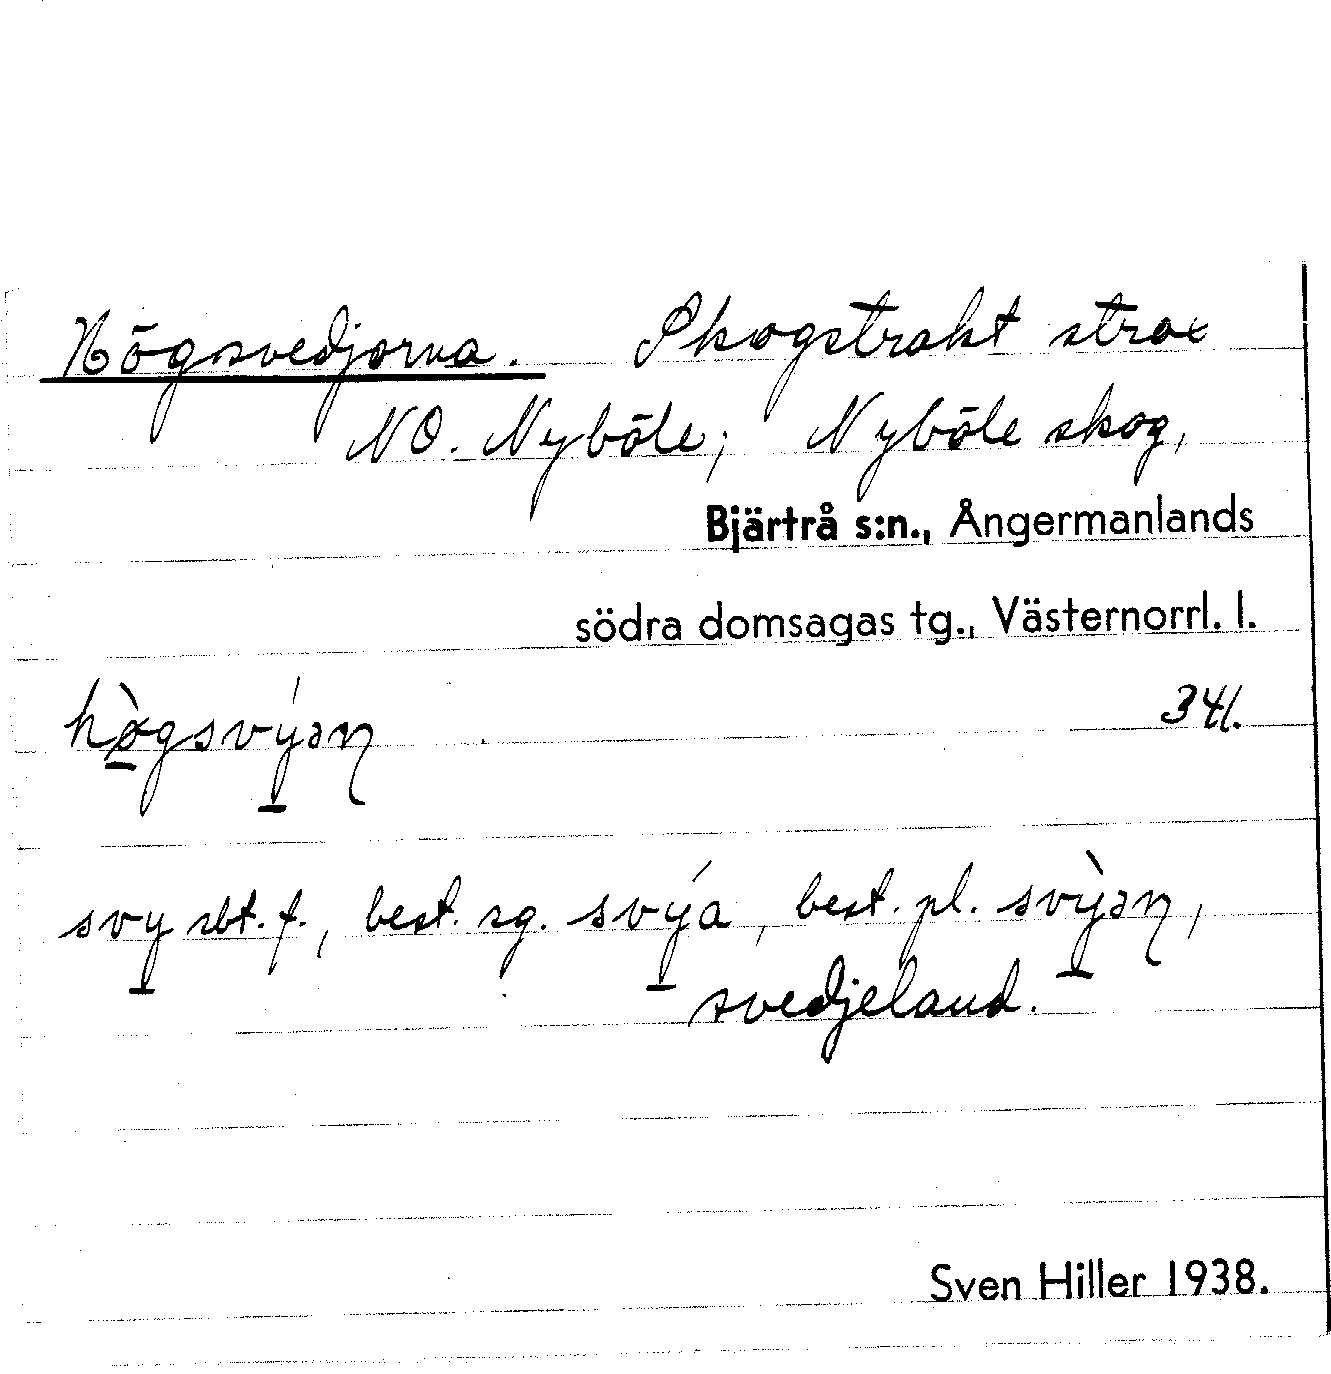 Högsvedjorna. Skogstrakt strax
NO. Nyböle; Nyböle skog,
Bjärtrå s:n., Ångermanlands
södra domsagas tg., Västernorrl. l.
hø̀gsvýaɳ 341.
svy sbt. f., best. sg. svýa, best. pl. svỳaɳ,
svedjeland.
Sven Hiller 1938.